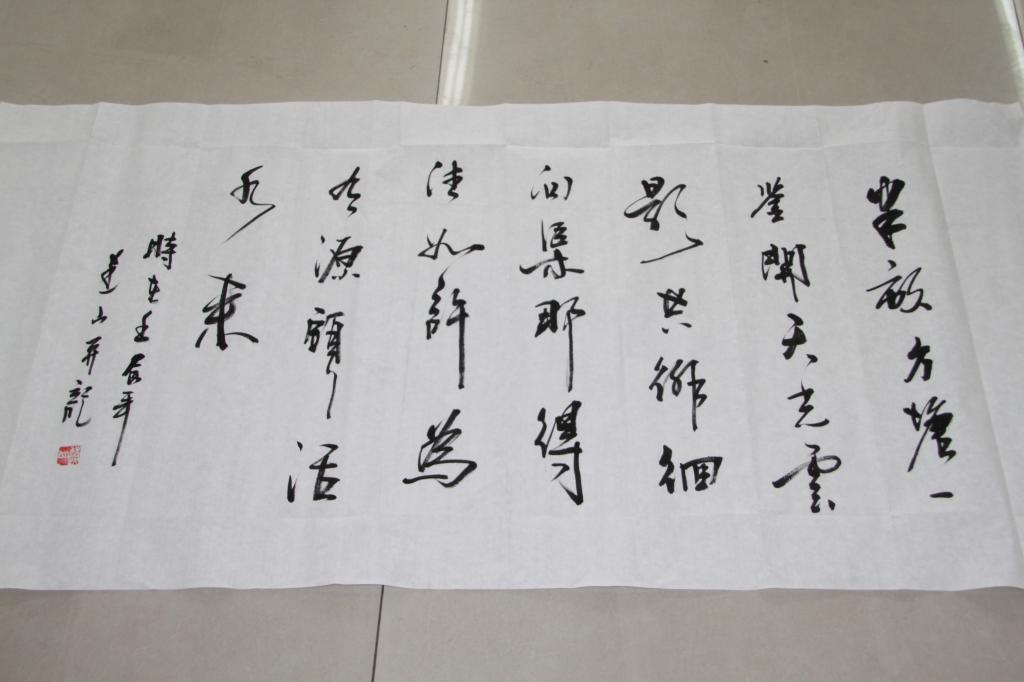 半畝方塘一
鉴開天光雲
影共徘徊
问渠那得
清如許為
有源頭活
水来
時在壬年
山龍